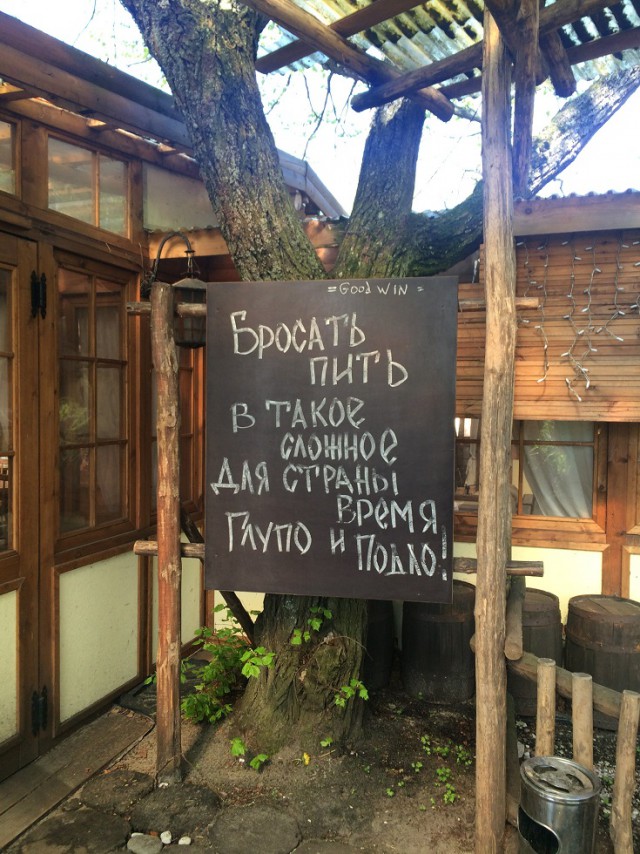 = GOOD WIN =
Бросать
пить
в такое
сложное
для страны
время
Глупо и Подло!